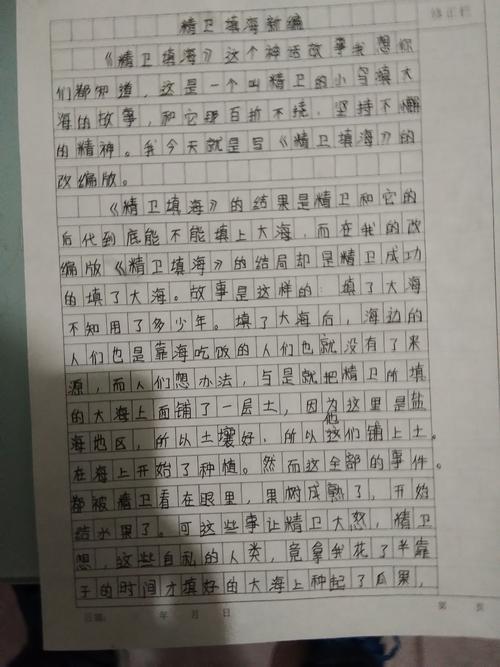 精卫填海新编
修正栏
《精卫填海》这个神话故事我想你
们都知道，这是一个叫精卫的小鸟填大
海的故事，和它那百折不挠，坚持不懈
的精神。我今天就是写《精卫填海》的
改编版。
《精卫填海》的结果是精卫和它的
后代到底能不能填上大海，而在我的改
编版《精卫填海》的结局却是精卫成功
的填了大海。故事是这样的：填了大海
不知用了多少年。填了大海后，海边的
人们也是靠海吃饭的人们也就没有了来
源，而人们想办法，与是就把精卫所填
的大海上面铺了一层土，因为这里是盐
海地区，所以土壤好，所以他这们铺上土。
在海上开始了种植。然而这全部的事件
都被精卫看在眼里，果树成熟了，开始
结水果了。可这些事让精卫大怒，精卫
想，这些自私的人类，竟拿我花了半辈
子的时间才填好的大海上种起了瓜果，
日期： 年 月 日
第 页